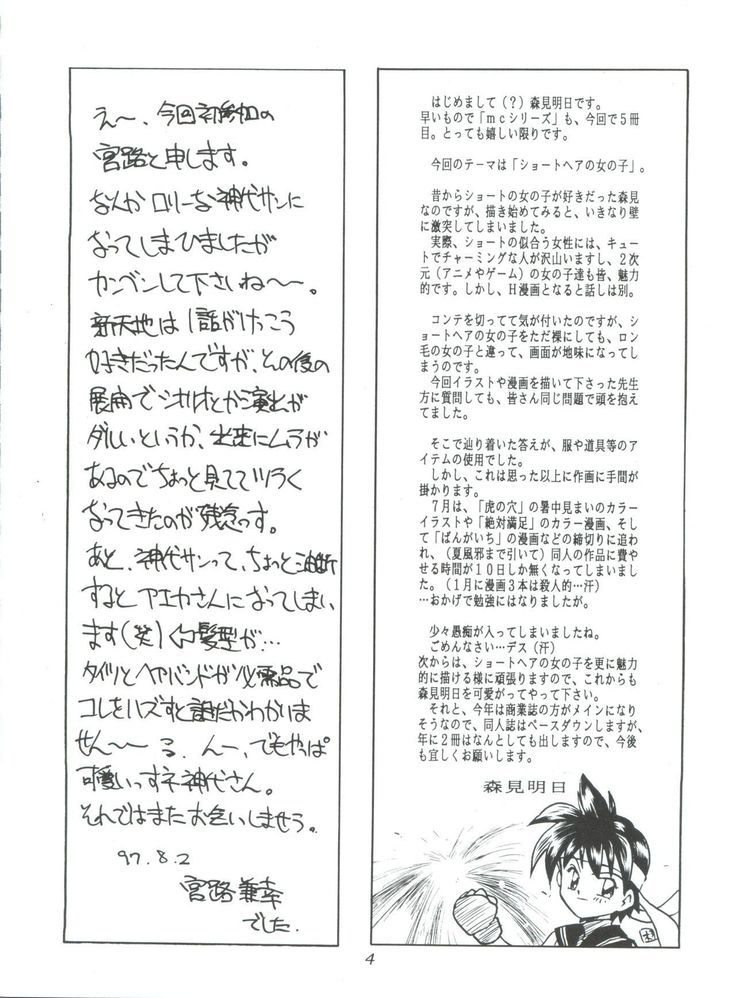 はじめまして（？）森見明日です。
早いもので「ｍｃシリーズ」も、今回で５冊
目。とっても嬉しい限りです。
今回のテーマは「ショートヘアの女の子」。
昔からショートの女の子が好きだった森見
なのですが、描き始めてみると、いきなり壁
に激突してしまいました。
実際、ショートの似合う女性には、キュー
トでチャーミングな人が沢山いますし、２次
元（アニメやゲーム）の女の子達も皆、魅力
的です。しかし、Ｈ漫画となると話しは別。
コンテを切ってて気が付いたのですが、シ
ョートヘアの女の子をただ裸にしても、ロン
毛の女の子と違って、画面が地味になってし
まうのです。
今回イラストや漫画を描いて下さった先生
方に質問しても、皆さん同じ問題で頭を抱え
てました。
そこで辿り着いた答えが、服や道具等のア
イテムの使用でした。
しかし、これは思った以上に作画に手間が
掛かります。
７月は、「虎の穴」の暑中見まいのカラー
イラストや「絶対満足」のカラー漫画、そし
て「ばんがいち」の漫画などの締切りに追わ
れ、（夏風邪まで引いて）同人の作品に費や
せる時間が１０日しか無くなってしまいまし
た。（１月に漫画３本は殺人的…汗）
…おかげで勉強にはなりましたが。
少々愚痴が入ってしまいましたね。
ごめんなさい…デス（汗）
次からは、ショートヘアの女の子を更に魅力
的に描ける様に頑張りますので、これからも
森見明日を可愛がってやって下さい。
それと、今年は商業誌の方がメインになり
そうなので、同人誌はペースダウンしますが、
年に２冊はなんとしても出しますので、今後
も宜しくお願いします。
森見明日
えー、今回初参加の
宮路と申します。
なんかロリーな神代サンに
なってしまひましたが
カンベンして下さいね〜。
新天地は１話がけっこう
好きだったんですが、その後の
展開でシオリオとか演出が
ダルいというか、出来にムラが
あるのでちょっと見ててツラく
なってきたのが残念っす。
あと、神代サンって、ちょっと油断
するとアエカさんになってしまい
ます（笑）髪型が…
タイツとヘアバンドが必需品で
コレをハズすと誰だかわかりま
せん〜る。んー、でもやっぱ
可愛いっすネ神代さん。
それではまたお会いしませう。
97.8.2
宮路兼幸
でした.
4